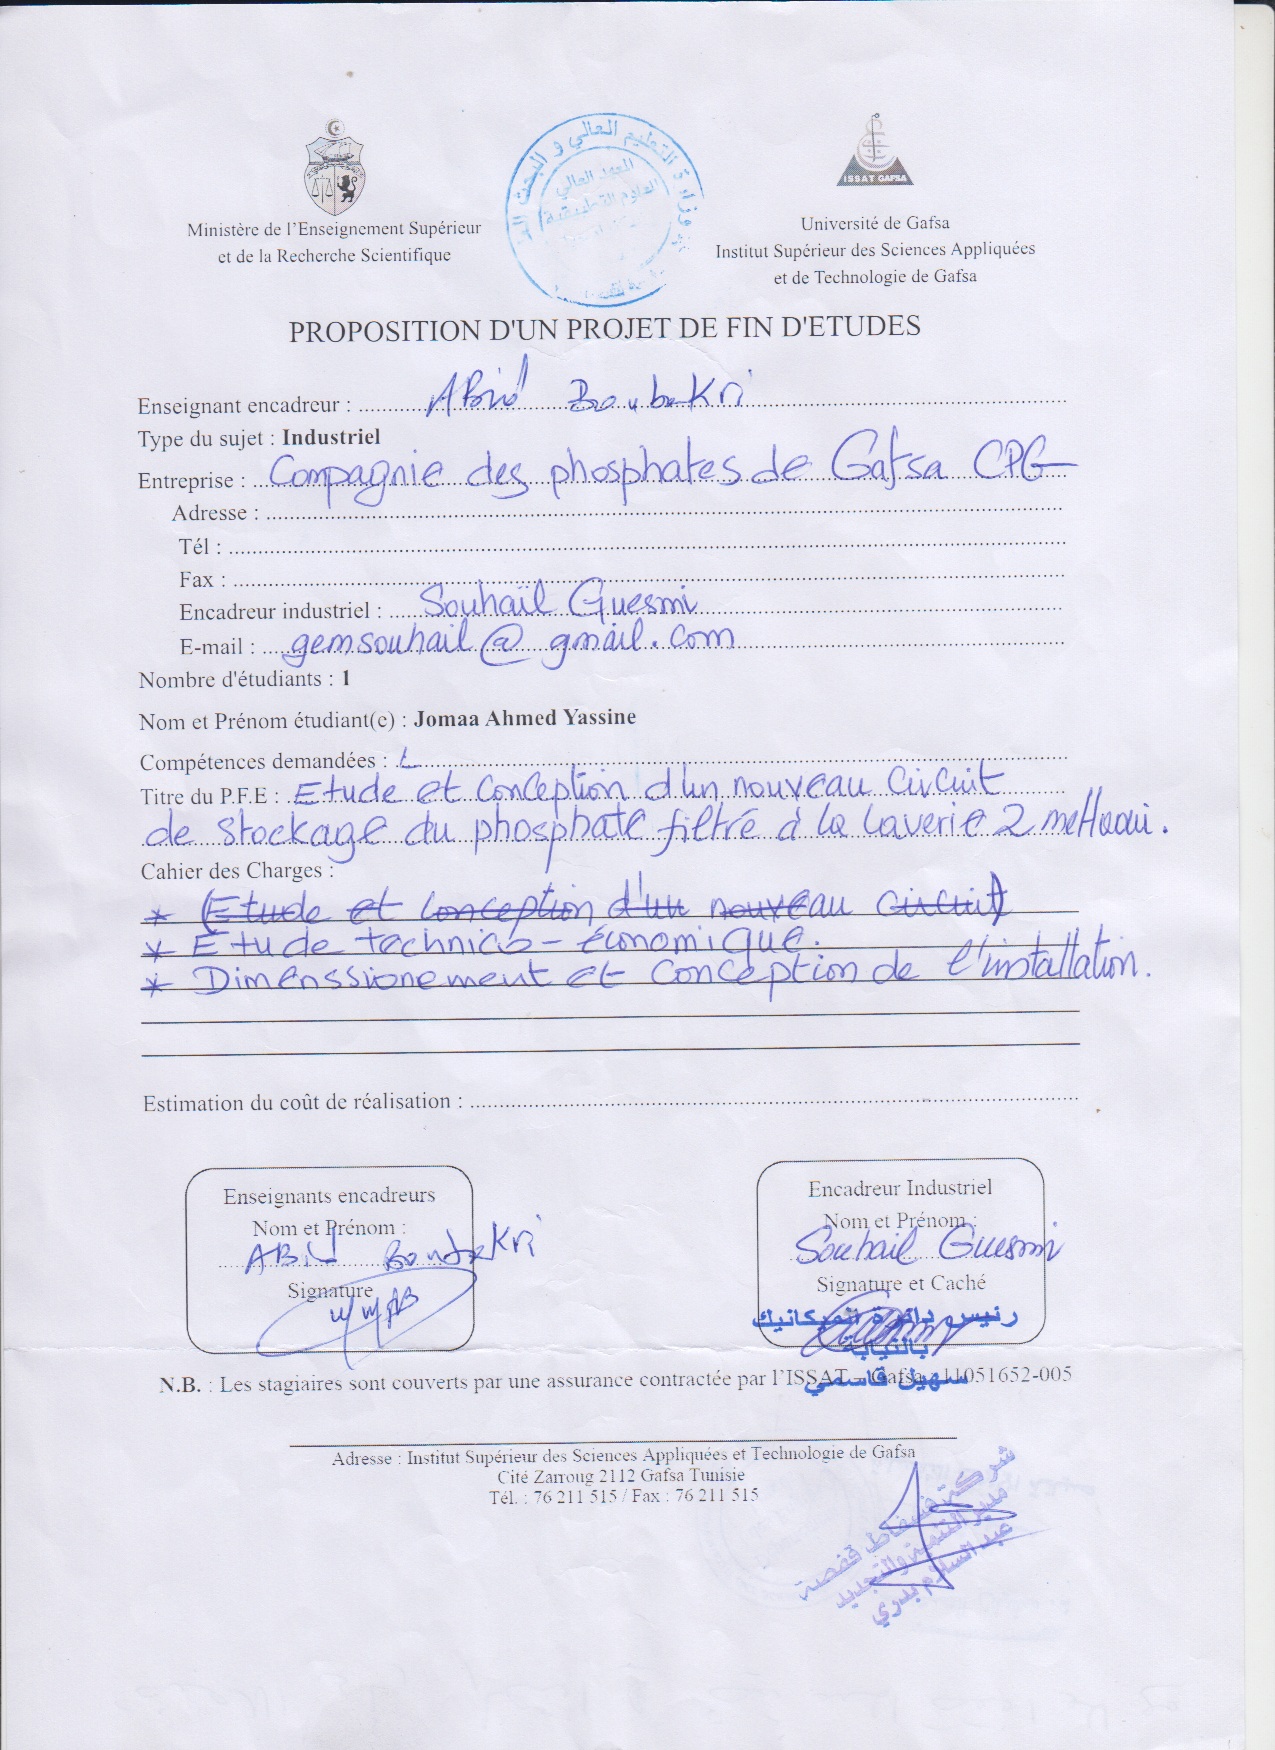 ISSAT GAFSA
Ministère de l'Enseignement Supérieur
et de la Recherche Scientifique
Université de Gafsa
Institut Supérieur des Sciences Appliquées
et de Technologie de Gafsa
وزارة التعليم العالي و البحث
المعهد العالي
للعلوم التطبيقية
PROPOSITION D'UN PROJET DE FIN D'ETUDES
Enseignant encadreur : ABid Boubakri
Type du sujet : Industriel
Entreprise : Compagnie des phosphates de Gafsa CPG
Adresse :
Tél :
Fax :
Encadreur industriel : Souhaïl Guesmi
E-mail : gemsouhail@gmail.com
Nombre d'étudiants : 1
Nom et Prénom étudiant(e) : Jomaa Ahmed Yassine
Compétences demandées :
Titre du P.F.E : Etude et conception d'un nouveau circuit
de stockage du phosphate filtré à la laverie 2 metlaoui.
Cahier des Charges :
* (Etude et conception d'un nouveau circuit)
* Etude technico-économique.
* Dimenssionement et conception de l'installation.
Estimation du coût de réalisation :
Enseignants encadreurs
Nom et Prénom :
ABid Boubakri
Signature
Encadreur Industriel
Nom et Prénom :
Souhail Guesmi
Signature et Caché
رئيس دائرة الميكانيك
بالنيابة
سهيل قاسمي
N.B. : Les stagiaires sont couverts par une assurance contractée par l'ISSAT – Gafsa : 11051652-005
Adresse : Institut Supérieur des Sciences Appliquées et Technologie de Gafsa
Cité Zarroug 2112 Gafsa Tunisie
Tél. : 76 211 515 / Fax : 76 211 515
شركة فسفاط قفصة
مدير التنمية والتجديد
عبد السلام بدري